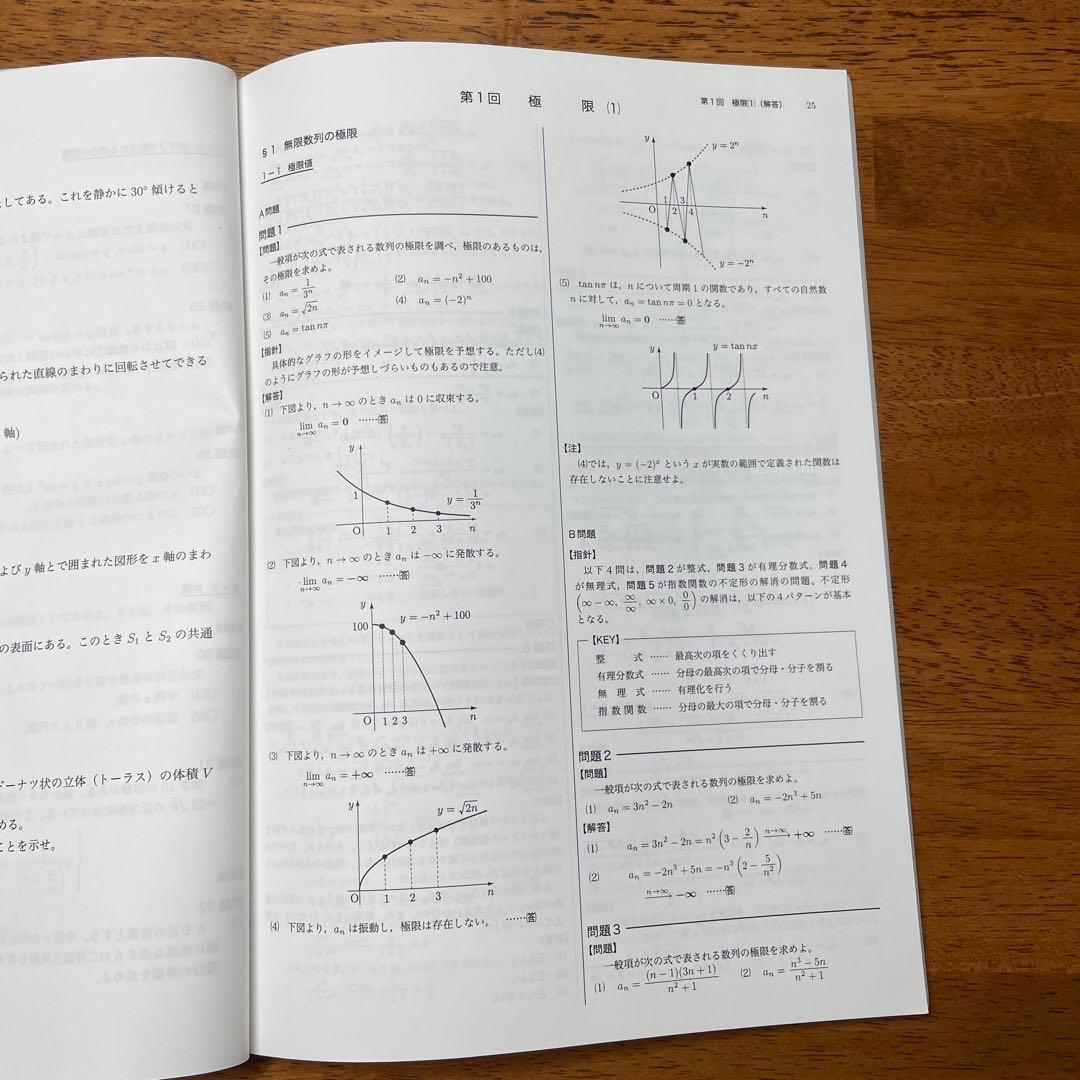 してある。これを静かに 30° 傾けると
られた直線のまわりに回転させてできる
軸)
よび y 軸とで囲まれた図形を x 軸のまわ
の表面にある。このとき S₁ と S₂ の共通
ドーナツ状の立体（トーラス）の体積 V
める。
ことを示せ。
第1回 極 限 (1)
第1回 極限(1)（解答） 25
§1 無限数列の極限
1－1 極限値
A問題
問題1
【問題】
一般項が次の式で表される数列の極限を調べ，極限のあるものは，
その極限を求めよ。
(1) aₙ = 1/3ⁿ (2) aₙ = −n² + 100
(3) aₙ = √2n (4) aₙ = (−2)ⁿ
(5) aₙ = tan nπ
【指針】
具体的なグラフの形をイメージして極限を予想する。ただし(4)
のようにグラフの形が予想しづらいものもあるので注意。
【解答】
(1) 下図より，n → ∞ のとき aₙ は 0 に収束する。
lim n→∞ aₙ = 0 ……答
y
1
y = 1/3ⁿ
O 1 2 3 n
(2) 下図より，n → ∞ のとき aₙ は −∞ に発散する。
lim n→∞ aₙ = −∞ ……答
y
100
y = −n² + 100
O 1 2 3 n
(3) 下図より，n → ∞ のとき aₙ は +∞ に発散する。
lim n→∞ aₙ = +∞ ……答
y
y = √2n
O 1 2 3 n
(4) 下図より，aₙ は振動し，極限は存在しない。 ……答
y
y = 2ⁿ
1 3
O 2 4 n
y = −2ⁿ
(5) tan nπ は，n について周期 1 の関数であり，すべての自然数
n に対して，aₙ = tan nπ = 0 となる。
lim n→∞ aₙ = 0 ……答
y
y = tan nx
O 1 2 n
【注】
(4)では，y = (−2)ˣ という x が実数の範囲で定義された関数は
存在しないことに注意せよ。
B問題
【指針】
以下4問は，問題2が整式，問題3が有理分数式，問題4
が無理式，問題5が指数関数の不定形の解消の問題。不定形
(∞ − ∞, ∞/∞, ∞ × 0, 0/0) の解消は，以下の4パターンが基本
となる。
【KEY】
整 式 …… 最高次の項をくくり出す
有理分数式 …… 分母の最高次の項で分母・分子を割る
無 理 式 …… 有理化を行う
指 数 関 数 …… 分母の最大の項で分母・分子を割る
問題2
【問題】
一般項が次の式で表される数列の極限を求めよ。
(1) aₙ = 3n² − 2n (2) aₙ = −2n³ + 5n
【解答】
(1) aₙ = 3n² − 2n = n² (3 − 2/n) n→∞ → +∞ ……答
(2) aₙ = −2n³ + 5n = −n³ (2 − 5/n²)
n→∞ → −∞ ……答
問題3
【問題】
一般項が次の式で表される数列の極限を求めよ。
(1) aₙ = (n − 1)(3n + 1)/n² + 1 (2) aₙ = n³ − 5n/n² + 1